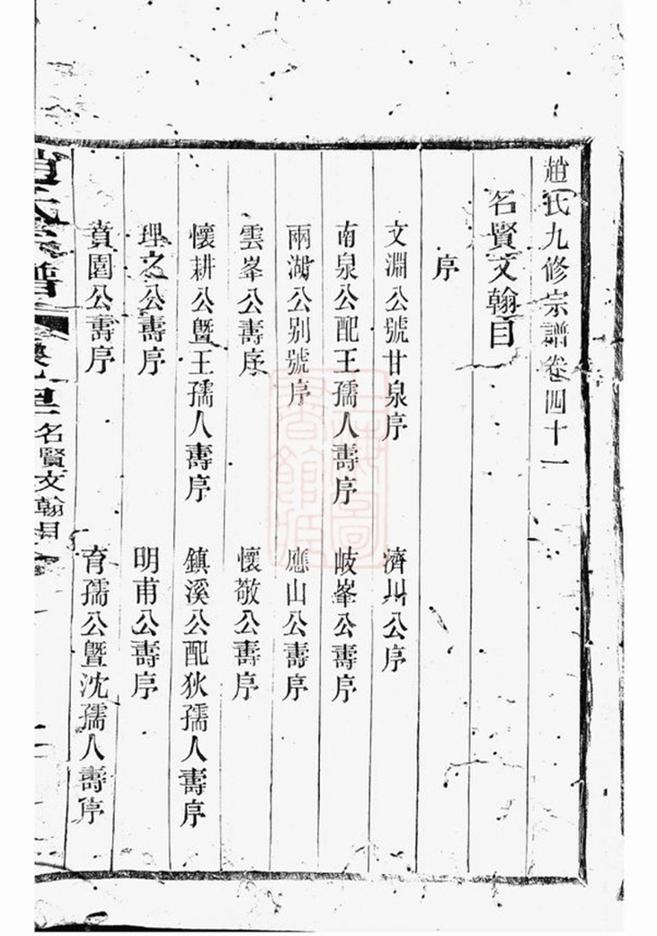 趙氏九修宗譜卷四十一
名賢文翰目
序
文淵公號甘泉序
濟川公序
南泉公配王孺人壽序
岐峯公壽序
兩湖公別號序
應山公壽序
雲峯公壽序
懷敬公壽序
懷耕公暨王孺人壽序
鎮溪公配狄孺人壽序
理之公壽序
明甫公壽序
蕡園公壽序
育孺公暨沈孺人壽序
名賢文翰目